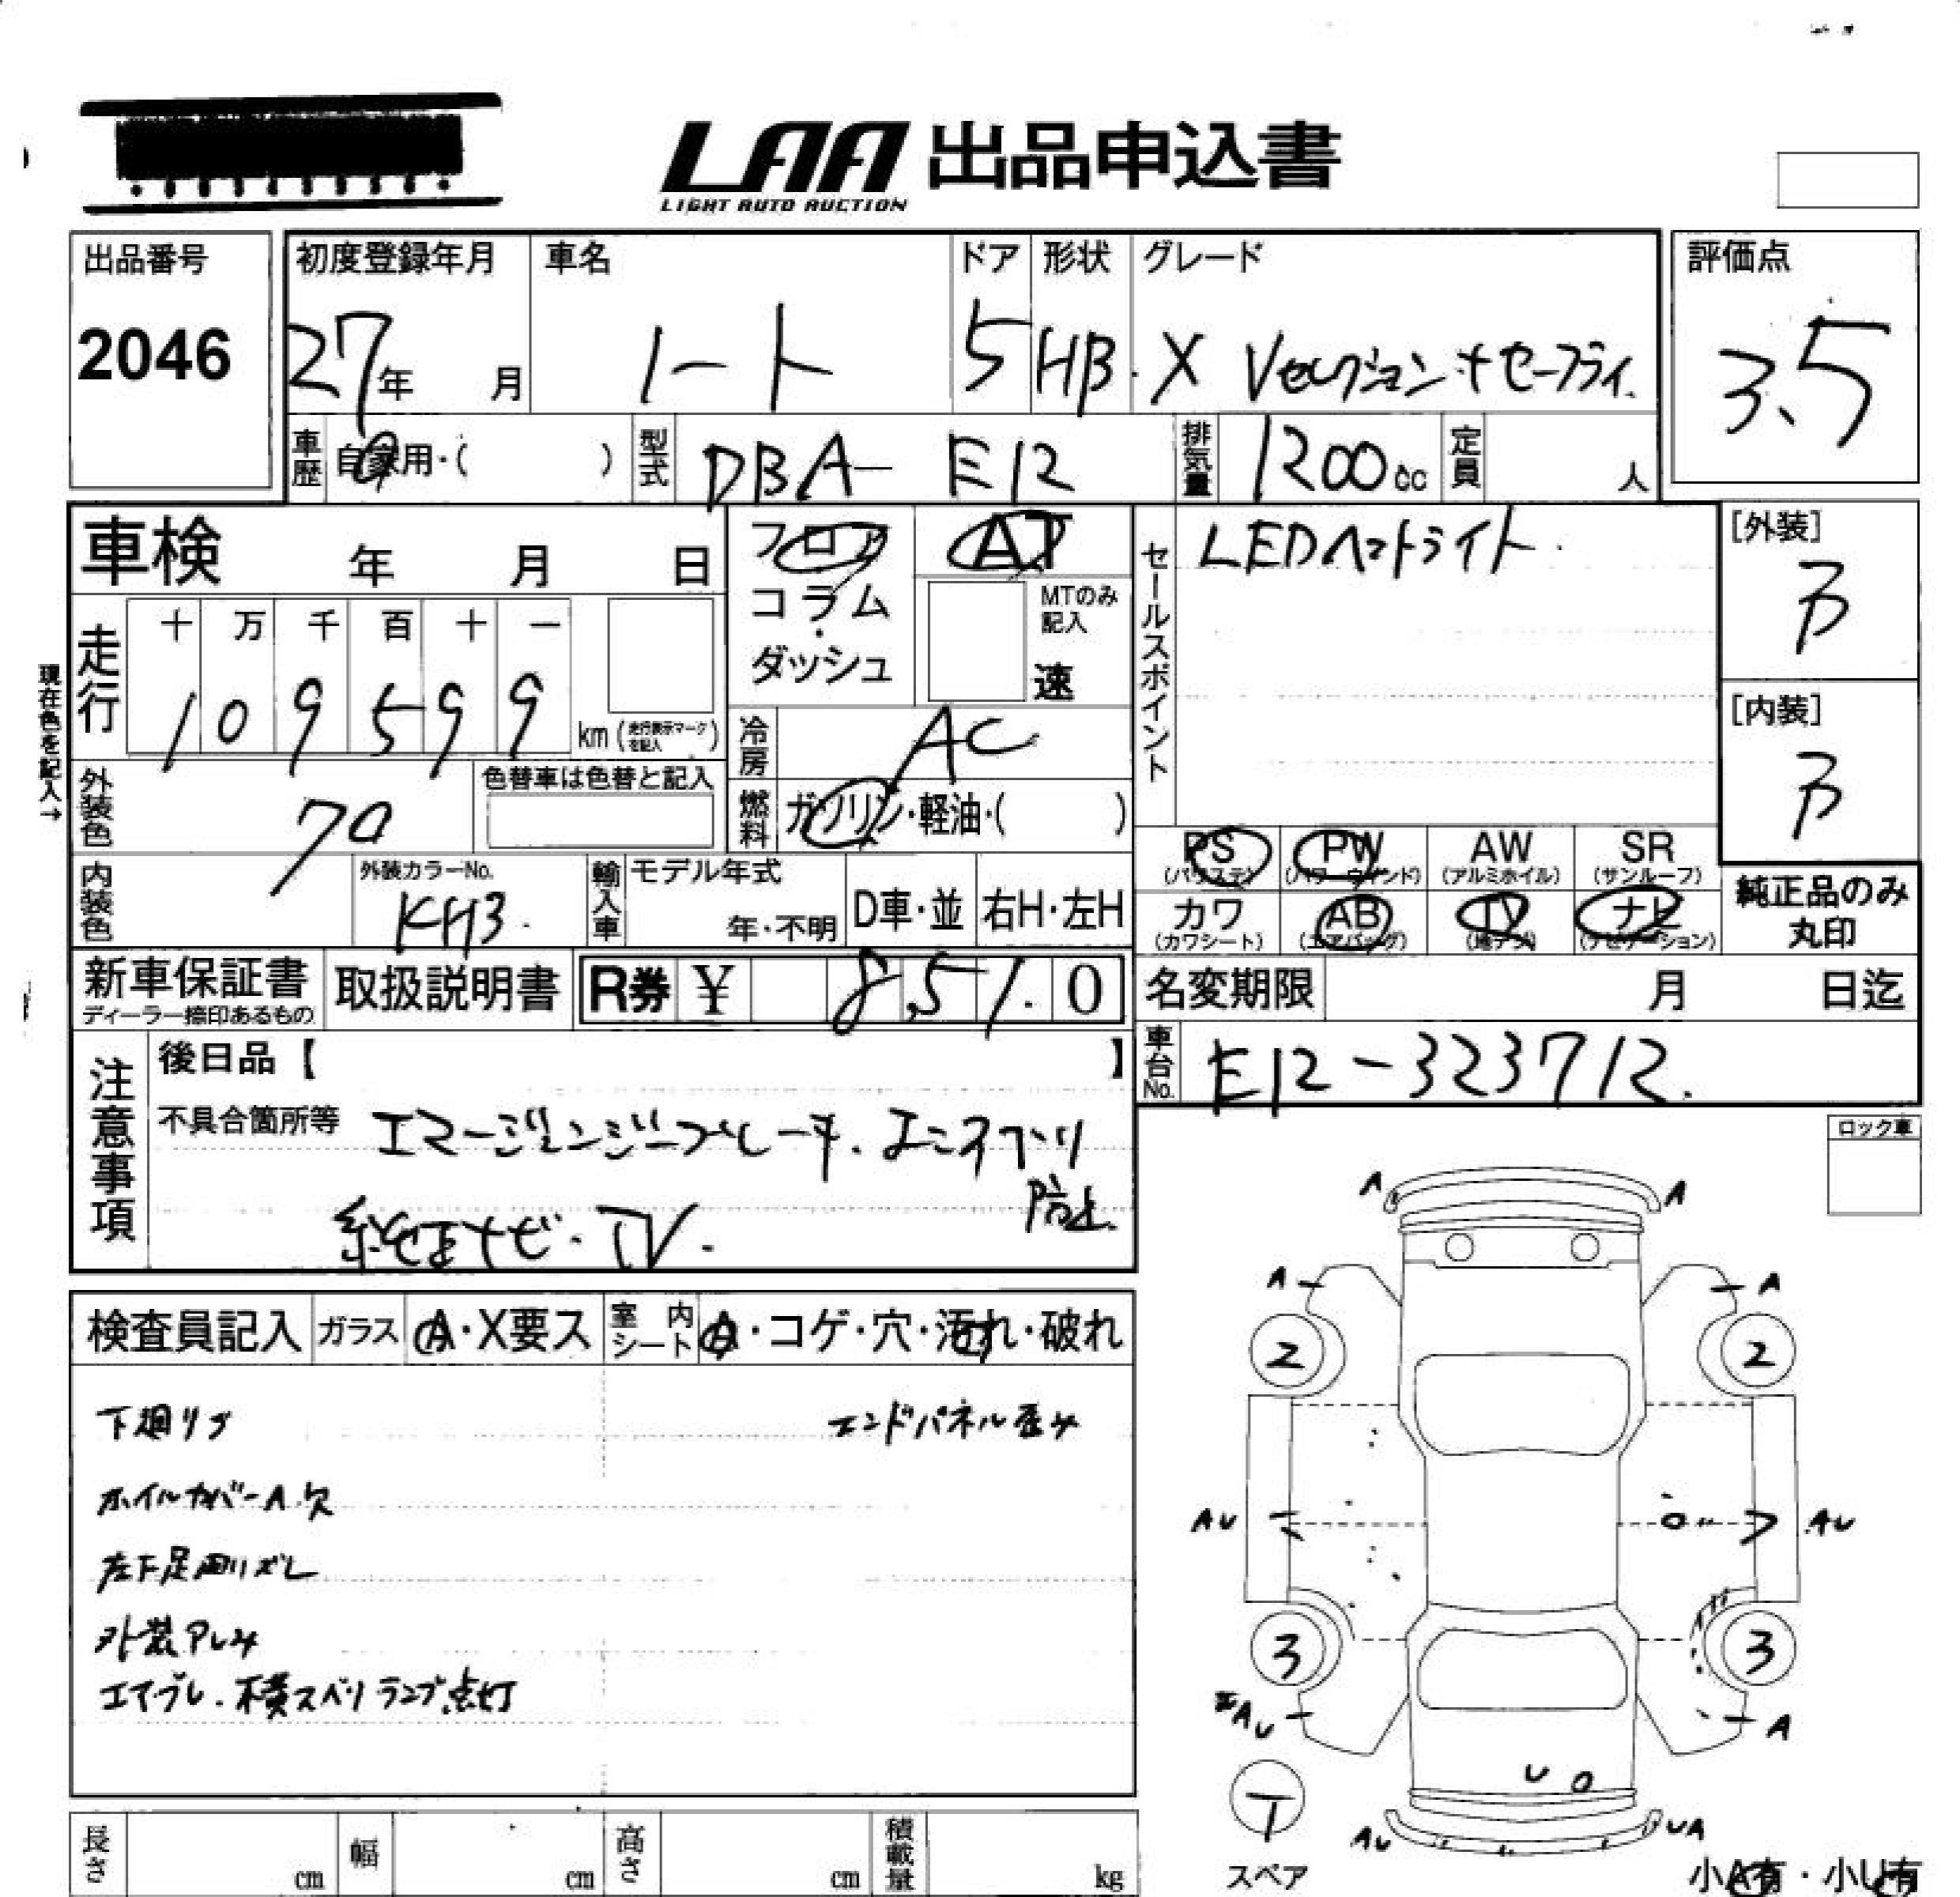 LAA 出品申込書
LIGHT AUTO AUCTION
出品番号
2046
初度登録年月
27年 月
車名
ノート
ドア
5
形状
HB
グレード
X Vセレクション+セーフティ
評価点
3.5
車歴 自家用・( )
型式 DBA- E12
排気量 1200cc
定員 人
車検 年 月 日
フロア・コラム・ダッシュ
AT
MTのみ記入
速
セールスポイント
LEDヘッドライト
[外装]
B
[内装]
B
現在色を記入→
走行
十 万 千 百 十 一
1 0 9 5 9 9 km (走行表示マークを記入)
冷房 AC
外装色
色替車は色替と記入
燃料 ガソリン・軽油・( )
内装色
外装カラーNo.
KH3
輸入車
モデル年式
年・不明
D車・並
右H・左H
PS (パワステ)
PW (パワーウインド)
AW (アルミホイル)
SR (サンルーフ)
カワ (カワシート)
AB (エアバッグ)
TV (地デジ)
ナビ (ナビゲーション)
純正品のみ丸印
新車保証書
ディーラー捺印あるもの
取扱説明書
R券 ¥ 8,510
名変期限 月 日迄
車台No. E12-323712
注意事項
後日品【 】
不具合箇所等 エマージェンジーブレーキ.
防止
純正ナビ・TV.
ロック車
検査員記入
ガラス A・X要ス
室内シート A・コゲ・穴・汚れ・破れ
下廻りサ
エンドパネル歪み
ホイルカバーA.欠
外装アレみ
エマブレ.横スベリランプ点灯
A A
A A
2 2
AU AU
3 3
AU A
U O
T
スペア
AU UA
小A有・小U有
長さ cm
幅 cm
高さ cm
積載量 kg